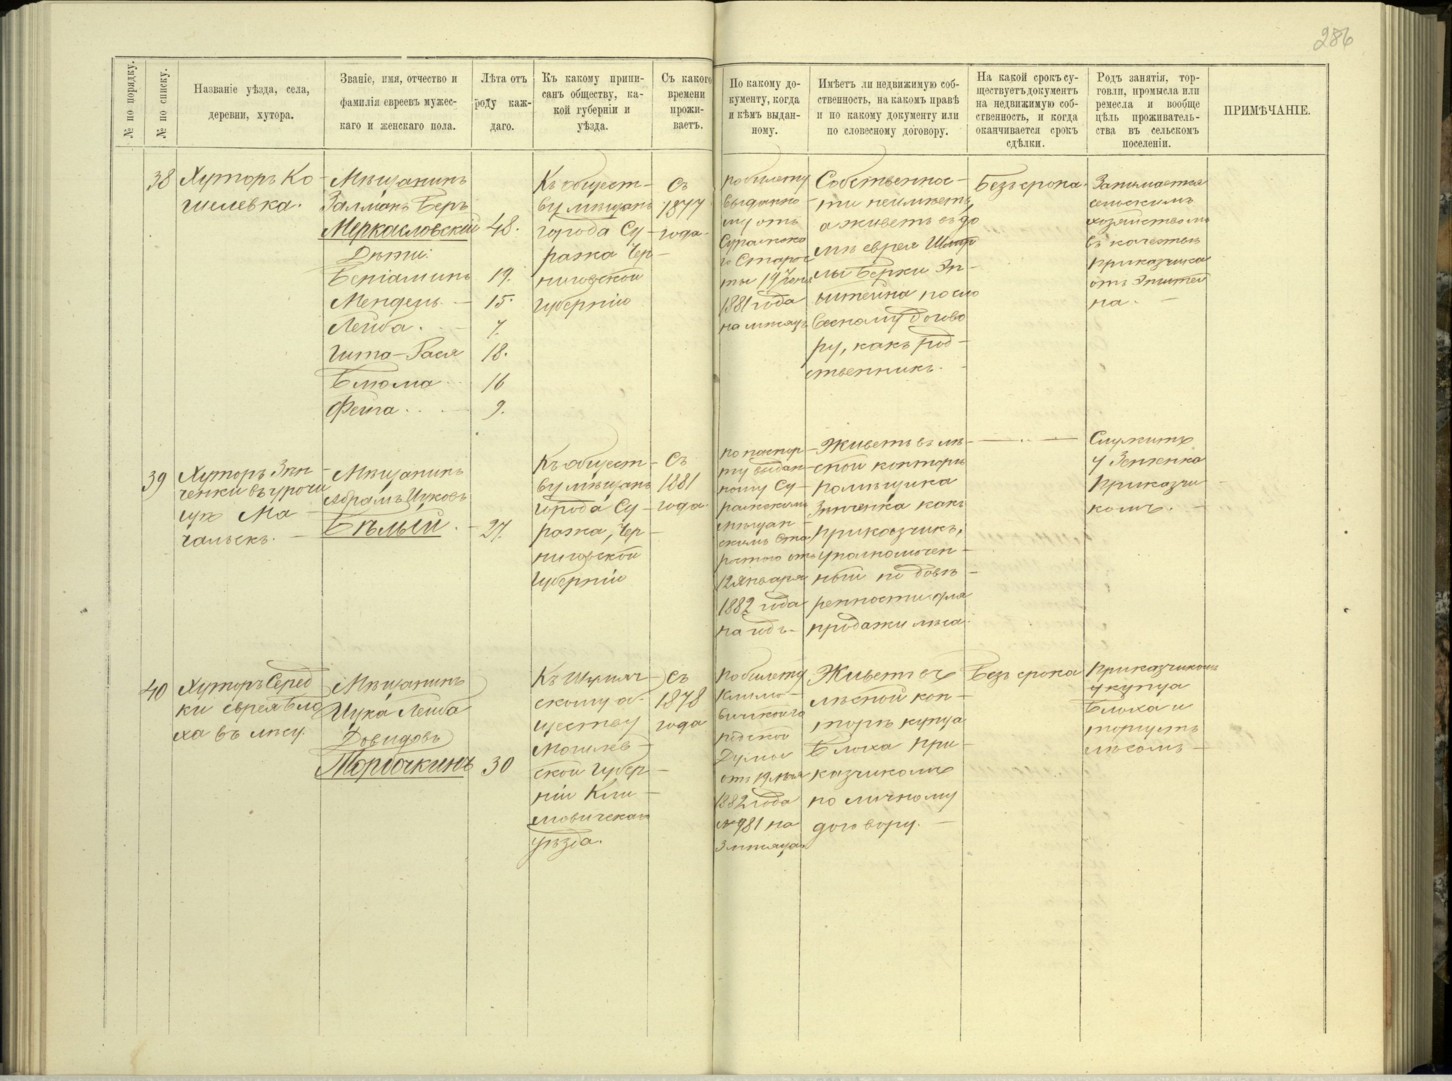 286
№ по порядку.
№ по списку.
Названіе уѣзда, села,
деревни, хутора.
Званіе, имя, отчество и
фамилія евреевъ мужес-
каго и женскаго пола.
Лѣта отъ
роду каж-
даго.
Къ какому припи-
санъ обществу, ка-
кой губерніи и
уѣзда.
Съ какого
времени
прожи-
ваетъ.
По какому до-
кументу, когда
и кѣмъ выдан-
ному.
Имѣетъ ли недвижимую соб-
ственность, на какомъ правѣ
и по какому документу или
по словесному договору.
На какой срокъ су-
ществуетъ документъ
на недвижимую соб-
ственность, и когда
оканчивается срокъ
сдѣлки.
Родъ занятія, тор-
говли, промысла или
ремесла и вообще
цѣль проживатель-
ства въ сельскомъ
поселеніи.
ПРИМѢЧАНІЕ.
38
Хуторъ Ко-
шелевка.
Мѣщанинъ
Залманъ Беръ
Меркасловскій
Дѣти:
Беніаминъ
Мендель
Лейба.
Гита-Рася
Блюма
Фейга
48.
19.
15.
7.
18.
16
9.
Къ общест-
ву мѣщанъ
города Су-
ража Чер-
ниговской
губерніи
Съ
1877
года.
По билету
выданно-
му отъ
Суражска-
го Старос-
ты 19
1881 года
на мѣсяцъ
Собственнос-
ти неимѣетъ,
а живетъ въ до
мѣ еврея
Берки Эп-
штейна по сло
весному догово
ру, какъ род-
ственникъ.
Безъ срока.
Занимается
сельскимъ
хозяйствомъ
въ качествѣ
приказчика
отъ Эпштей
на.
39
Хуторъ Зин-
ченки въ урочи
щѣ Ма-
чальскъ.
Мѣщанинъ
Абрамъ Ицковъ
Бѣлый.
27.
Къ общест-
ву мѣщанъ
города Су-
ража, Чер-
ниговской
губерніи
Съ
1881
года.
По паспор-
ту выдан-
ному Су-
ражскимъ
мѣщан-
скимъ Ста
ростою отъ
12 Января
1882 года
на годъ.
Живетъ въ лѣ-
сной конторѣ
помѣщика
Зинченка какъ
приказчикъ,
уполномочен-
ный по довѣ-
ренности для
продажи лѣса.
Служитъ
у Зенченка
приказчи-
комъ.
40
Хуторъ Серед
ки еврея Бло
ха въ лѣсу.
Мѣщанинъ
Ицка Лейба
Довидовъ
Торбочкинъ
30
Къ Шумяч-
скому об-
ществу
Могилев-
ской губер-
ніи Кли-
мовичскаго
уѣзда.
Съ
1878
года
По билету
Климо-
вичской
городской
Думы
отъ 19 мая
1882 года
№ 981 на
3 мѣсяца.
Живетъ въ
лѣсной кон-
торѣ купца
Блоха при-
казчикомъ
по личному
договору.
Безъ срока
Приказчикомъ
у купца
Блоха и
торгуетъ
лѣсомъ